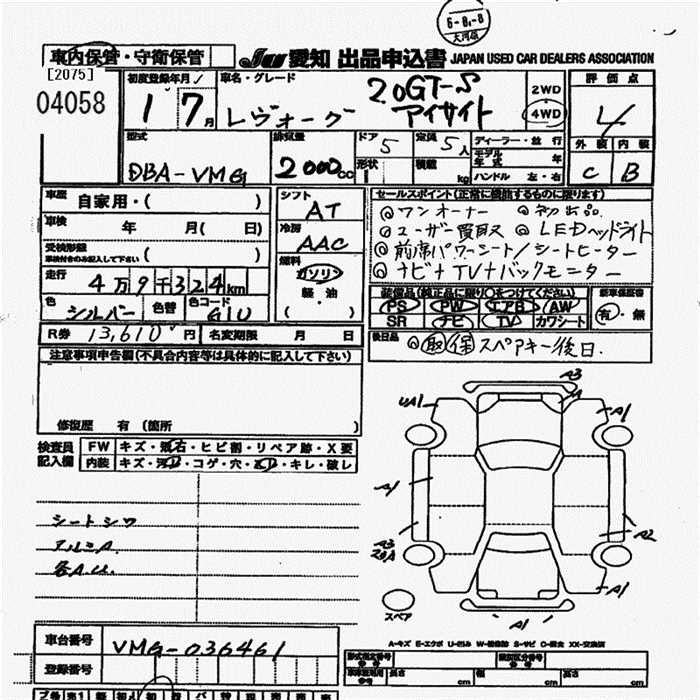 6-8.-8
大河原
車内保管・守衛保管 JU 愛知 出品申込書 JAPAN USED CAR DEALERS ASSOCIATION
[2075]
04058
初度登録年月
1 7 月
車名・グレード
レヴォーグ 2.0GT-S アイサイト
2WD
4WD
評価点
4
外装 内装
C B
型式
DBA-VMG
排気量
2000cc
ドア 5
形状
定員 5人
積載 kg
ディーラー・並行
モデル年式 年
ハンドル 左・右
車歴 自家用・( )
車検 年 月( 日)
受検形態
車検付きのみ記入して下さい ( )
走行 4万9千324km
色 シルバー 色替 色コード G1U
シフト
AT
冷房
AAC
燃料
ガソリン
軽・油
( )
セールスポイント(正常に機能するものに限ります)
◎ワンオーナー ◎初出品
◎ユーザー買取 ◎LEDヘッドライト
◎前席パワーシート/シートヒーター
◎ナビ+TV+バックモニター
装備品(純正品に限り○をつけてください)
PS PW エアB AW
SR ナビ TV カワシート
新車保証書
有・無
R券 13,610円 名変期限 月 日
後日品 ◎取 保 スペアキー後日.
注意事項申告欄(不具合内容等は具体的に記入して下さい)
修復歴 有 (箇所 )
検査員記入欄
FW キズ・飛石・ヒビ割・リペア跡・X要
内装 キズ・汚れ・コゲ・穴・・キレ・破レ
シートシワ
アルミA.
各A.U.
A3
UA1
A
A1
A1
A2
A3
A1
A1
スペア
車台番号 VMG-036461
登録番号
A-キズ E-エクボ U-凹み W-補修跡 S-サビ C-腐食 XX-交換済
型式指定番号
類別区分番号
長さ 幅 高さ